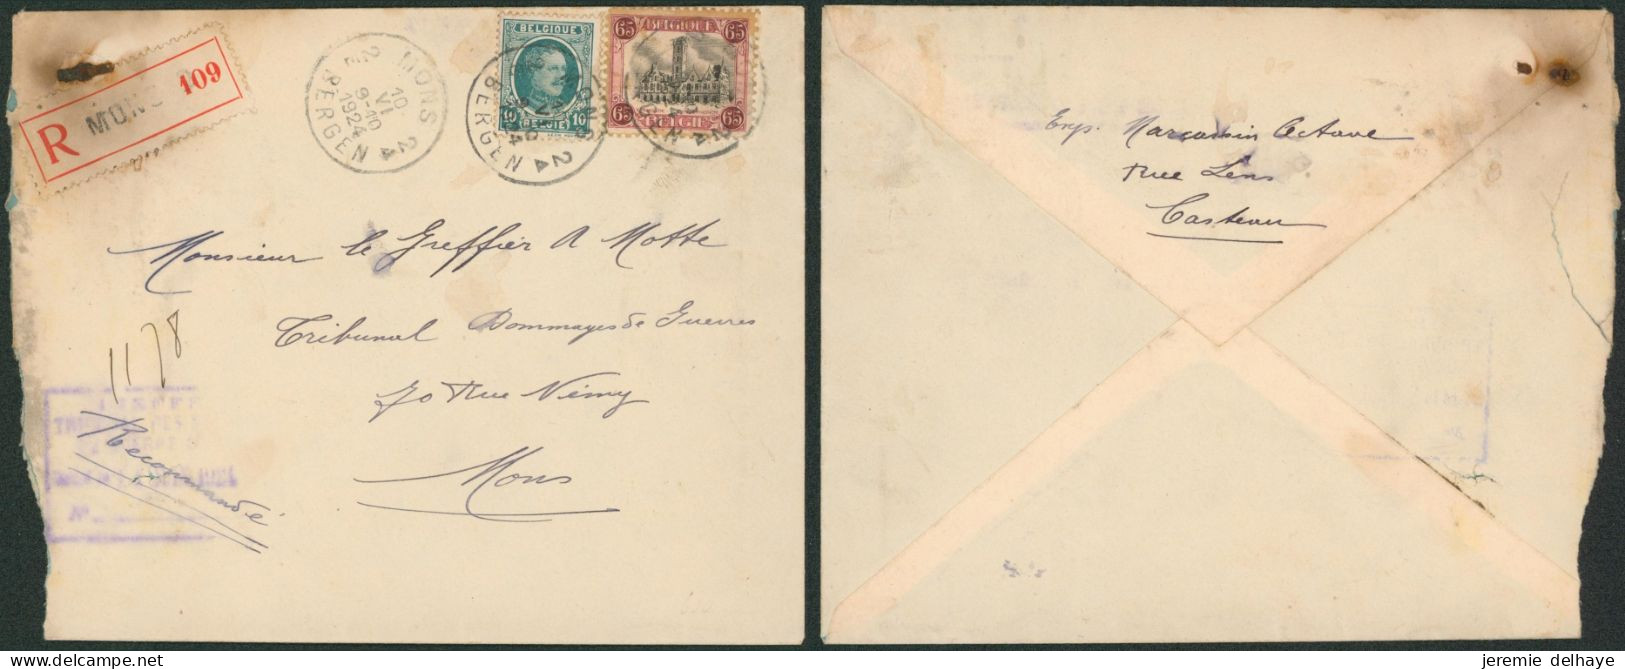 R MONS 109
MONS 2
10
VI
9-10
1924
2 BERGEN
BELGIQUE
10 BELGIE 10
65 BELGIQUE 65
65 BELGIE 65
MONS 2
BERGEN
Monsieur le Greffier A Motte
Tribunal Dommages de Guerres
70 Rue Nimy
Mons
1178
Recommandé
1924
N°
Exp. Marcassin Octave
Rue Lens
Casteau
jeremie delhaye